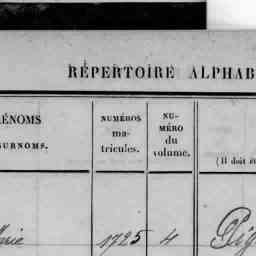 RÉPERTOIRE ALPHAB
ÉNOMS
SURNOMS.
NUMÉROS
ma-
tricules.
NU-
MÉRO
du
volume.
(Il doit ê
1725 4